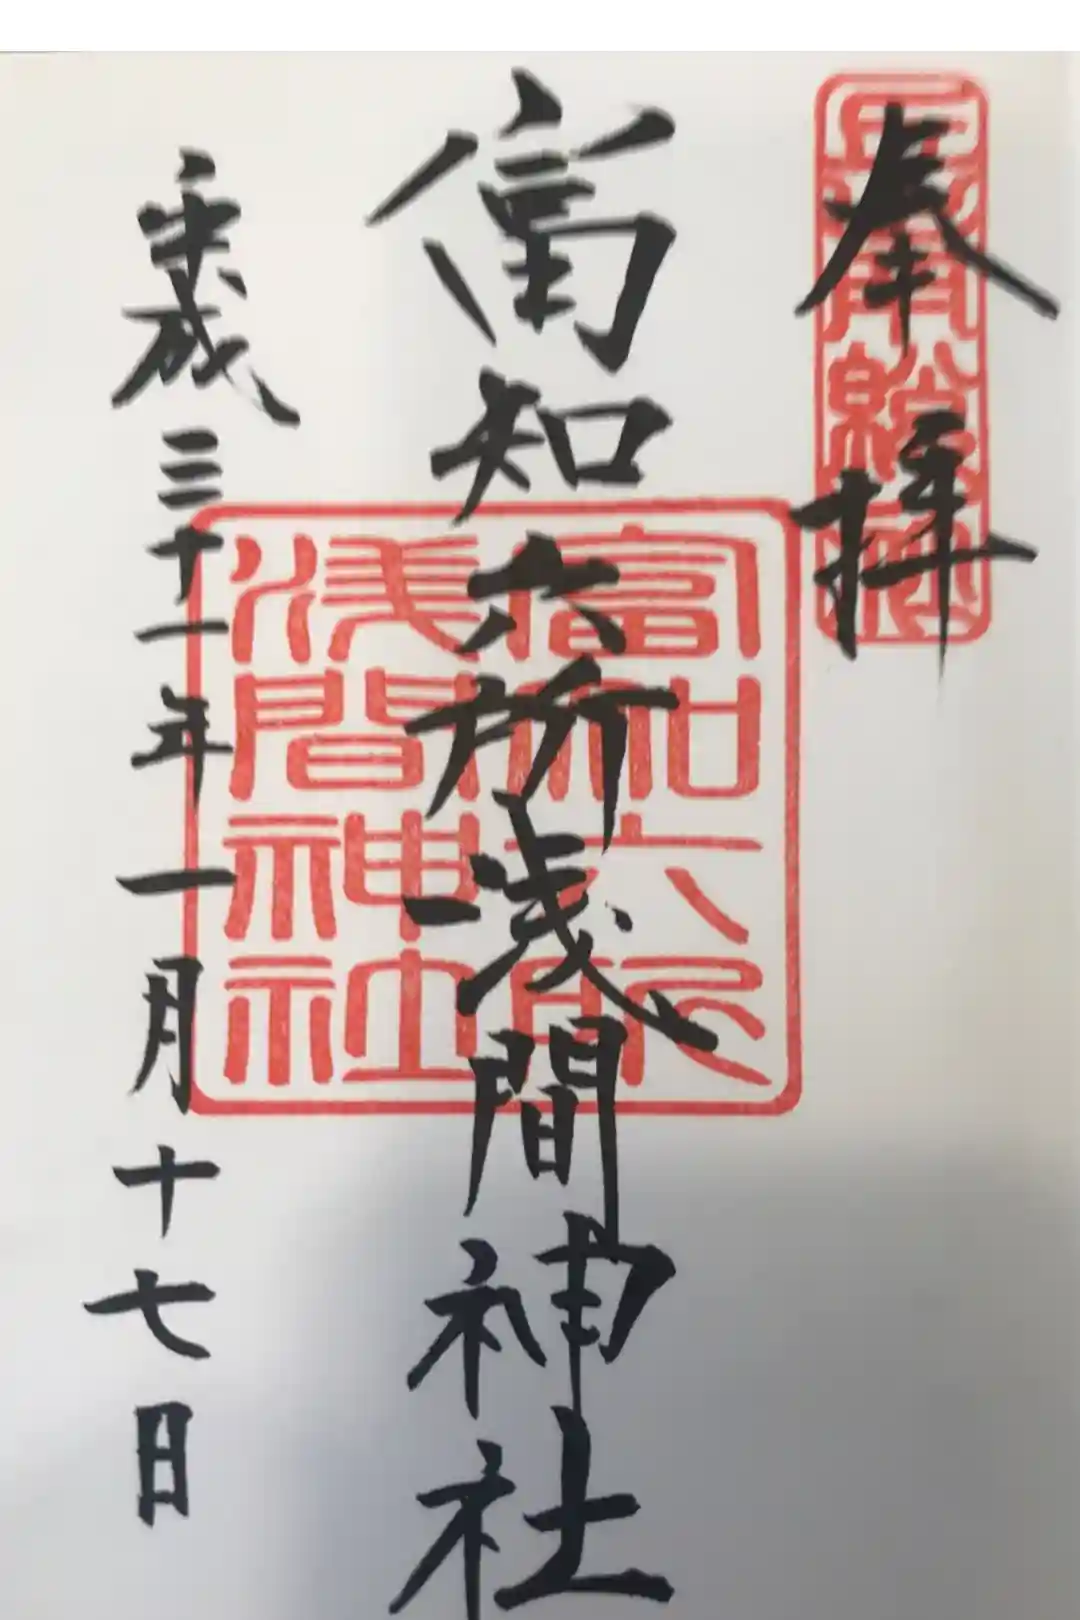 奉拝
岳南総社
富知六所浅間神社
富知六所
浅間神社
平成三十一年一月十七日